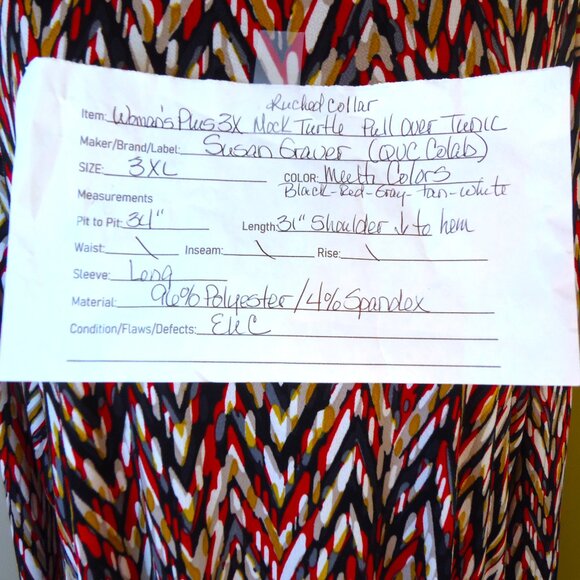 Ruched Collar
Item: Woman's Plus 3X Mock Turtle Pull Over Tunic
Maker/Brand/Label: Susan Graver (QVC Colab)
SIZE: 3XL COLOR: Meulti Colors
Black-Red-Gray-Tan-White
Measurements
Pit to Pit: 34" Length: 31" Shoulder ↓ to hem
Waist: \ Inseam: \ Rise: \
Sleeve: Long
Material: 96% Polyester/4% Spandex
Condition/Flaws/Defects: EUC